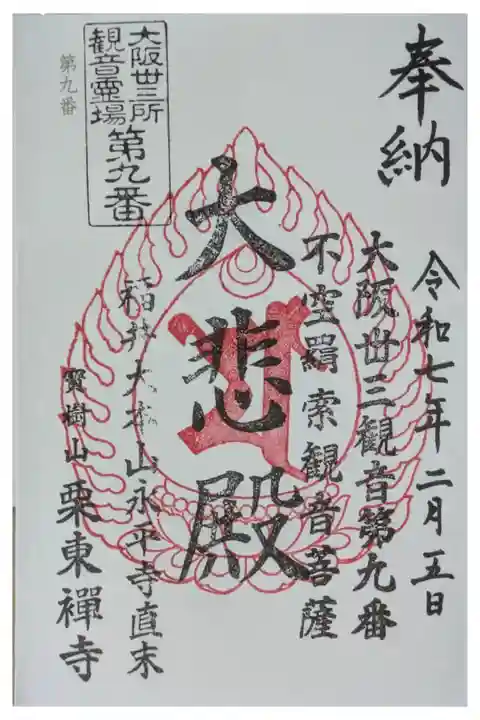 奉納
令和七年二月五日
大阪丗三観音第九番
不空羂索観音菩薩
大悲殿
福井大本山永平寺直末
寳樹山 栗東禪寺
大阪丗三所
観音霊場 第九番
第九番